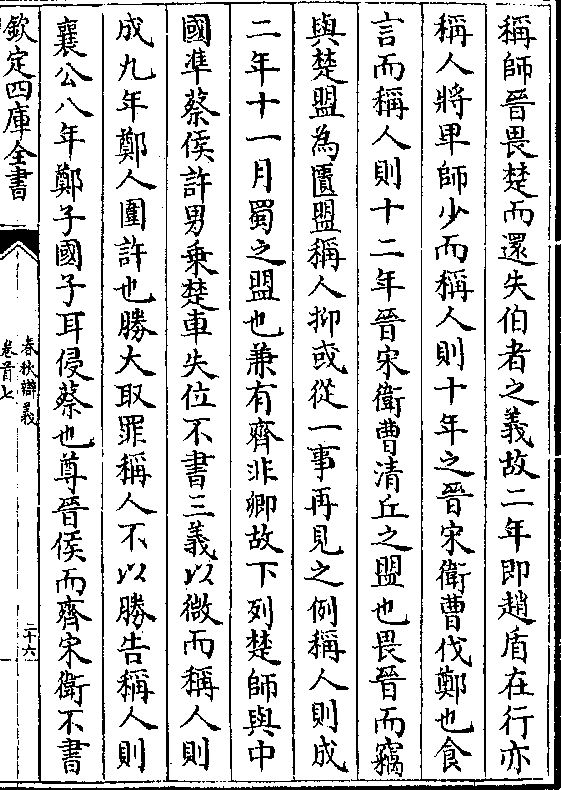 稱師晉畏楚而還失伯者之義故二年即趙盾在行亦
稱人將卑師少而稱人則十年之晉宋衛曹伐鄭也食
言而稱人則十二年晉宋衛曹清丘之盟也畏晉而竊
與楚盟為匱盟稱人抑或從一事再見之例稱人則成
二年十一月蜀之盟也兼有齊非卿故下列楚師與中
國準蔡侯許男乗楚車失位不書三義以微而稱人則
成九年鄭人圍許也勝大取罪稱人不以勝告稱人則
襄公八年鄭子國子耳侵蔡也尊晉侯而齊宋衛不書
欽定四庫全書
春秋辯義
卷首七
二十六